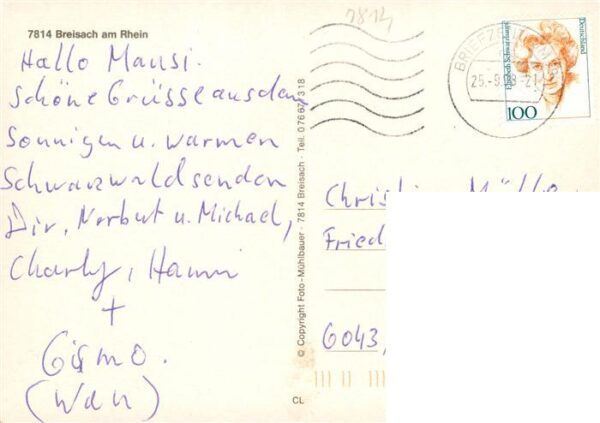 7814 Breisach am Rhein
7814
Hallo Mausi.
Schöne Grüsse aus dem
Sonnigen u. warmen
Schwarzwald senden
Dir, Norbert u. Michael,
Charly, Hanni
+
Gismo.
(Wau)
© Copyright Foto-Mühlbauer · 7814 Breisach · Tell. 07667/318
CL
BRIEFZE
25.-9.
Elisabeth Schwarzhaupt
Deutschland
100
Müll
Fried
6043,